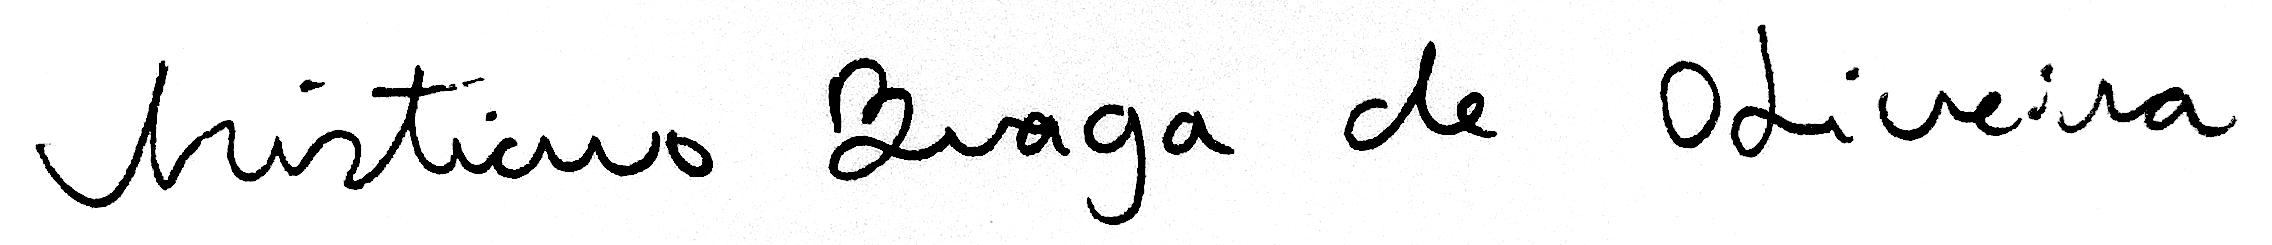 Christiano Braga de Oliveira